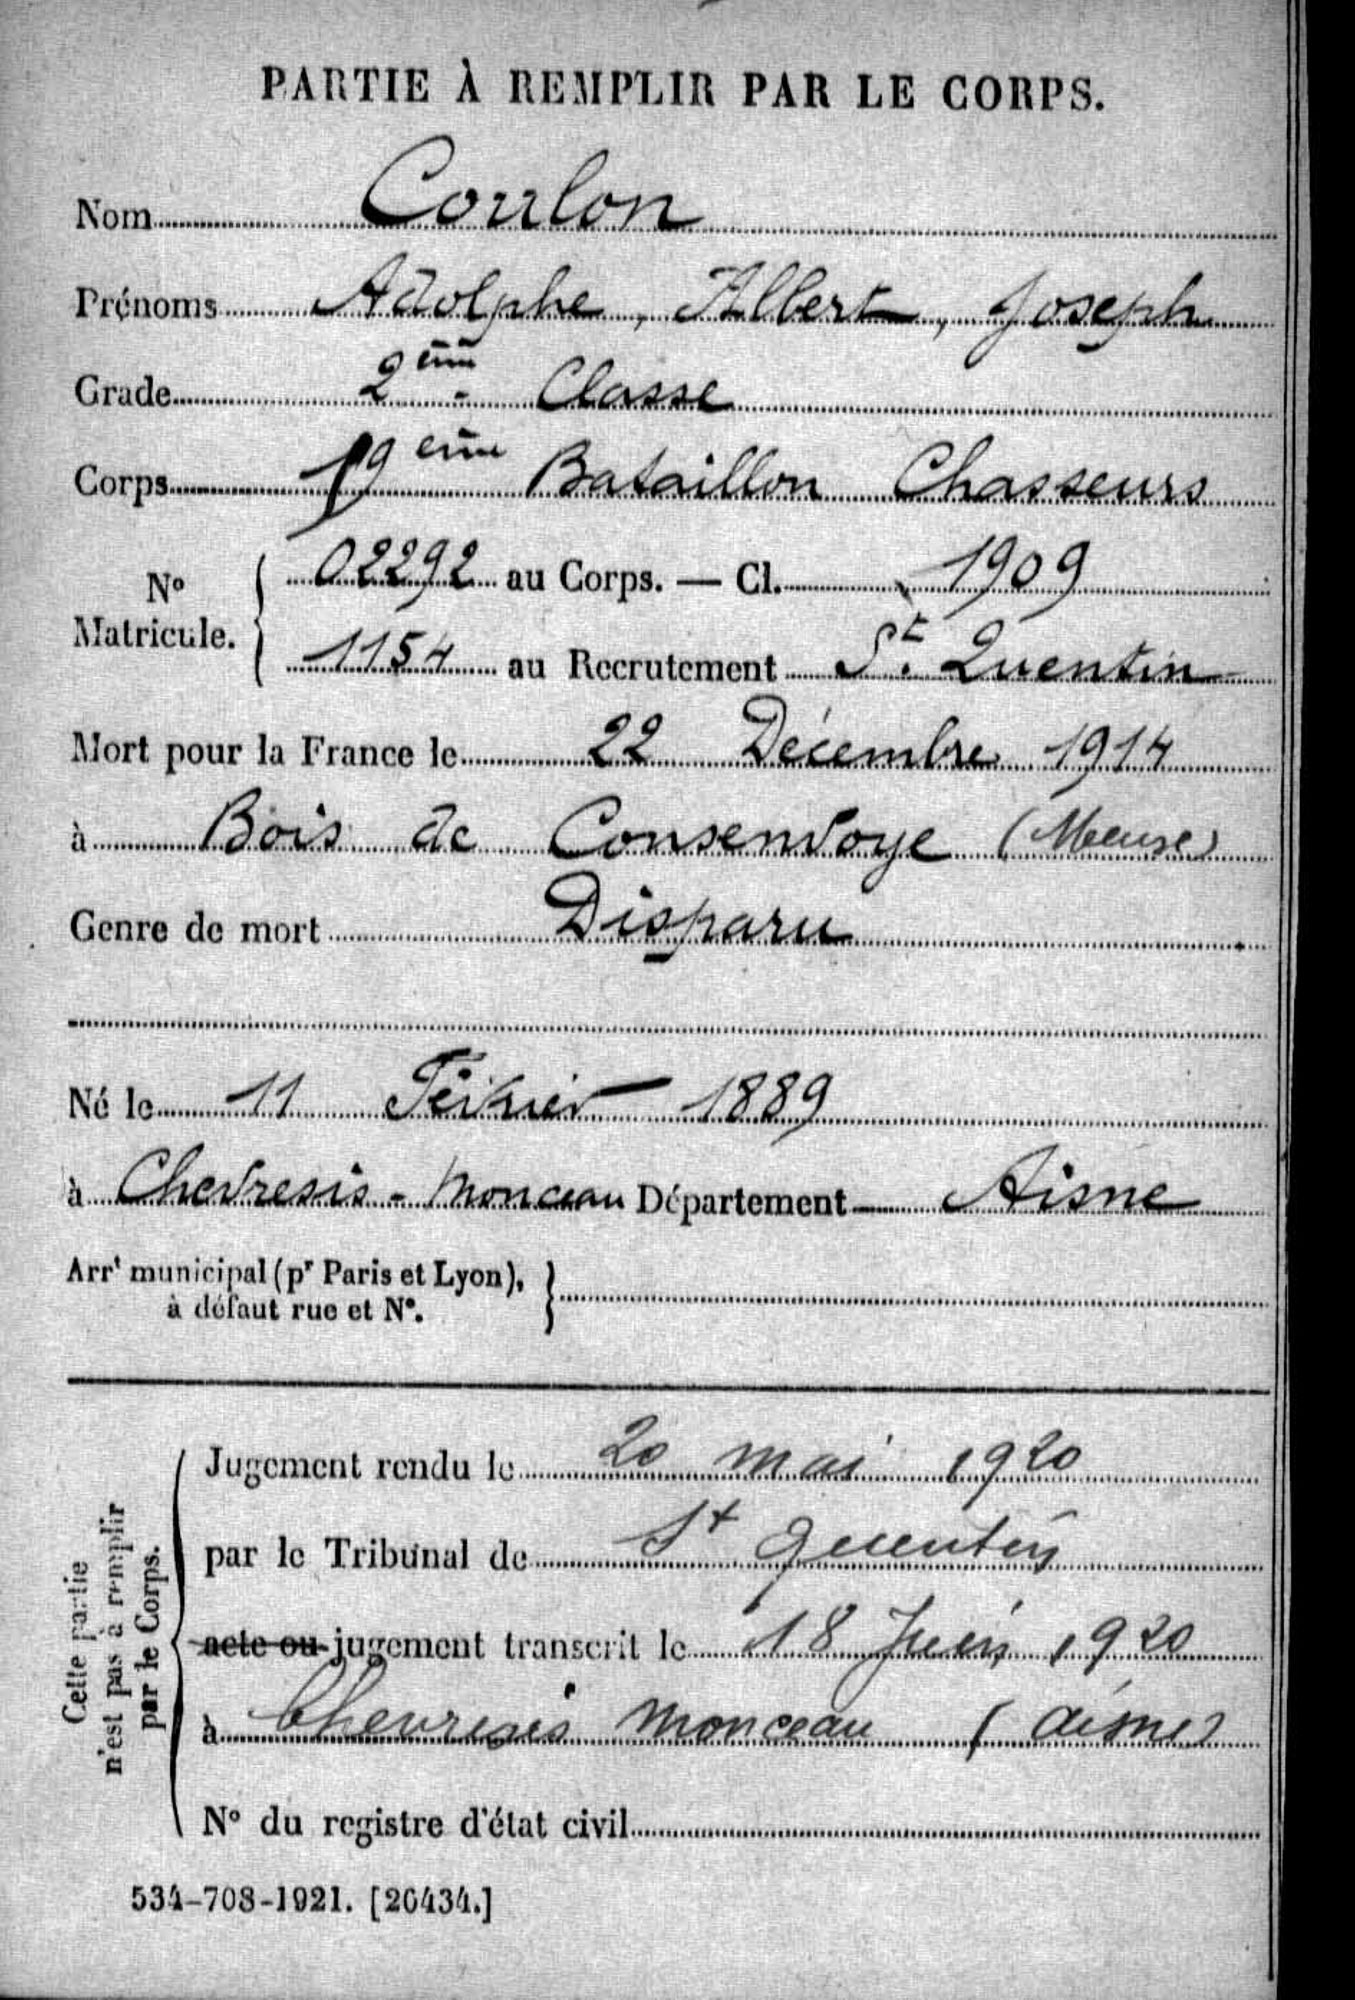 PARTIE À REMPLIR PAR LE CORPS.
Nom Coulon
Prénoms Adolphe, Albert, Joseph
Grade 2ème Classe
Corps 19ème Bataillon Chasseurs
N° Matricule. 02292 au Corps. — Cl. 1909
1154 au Recrutement St. Quentin
Mort pour la France le 22 Décembre 1914
à Bois de Consenvoye (Meuse)
Genre de mort Disparu
Né le 11 Février 1889
à Chevresis - Monceau Département Aisne
Arrt municipal (pr Paris et Lyon),
à défaut rue et N°.
Cette partie
n'est pas à remplir
par le Corps.
Jugement rendu le 20 mai 1920
par le Tribunal de St Quentin
acte ou jugement transcrit le 18 Juin 1920
à Chevresis Monceau (Aisne)
N° du registre d'état civil
534-708-1921. [26434.]